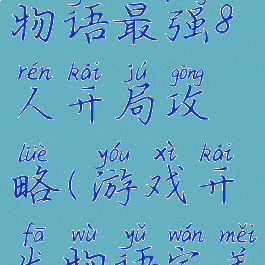 物语最强8
rén kāi jú gōng
人开局攻
lüè yóu xì kāi
略(游戏开
fā wù yǔ wán měi